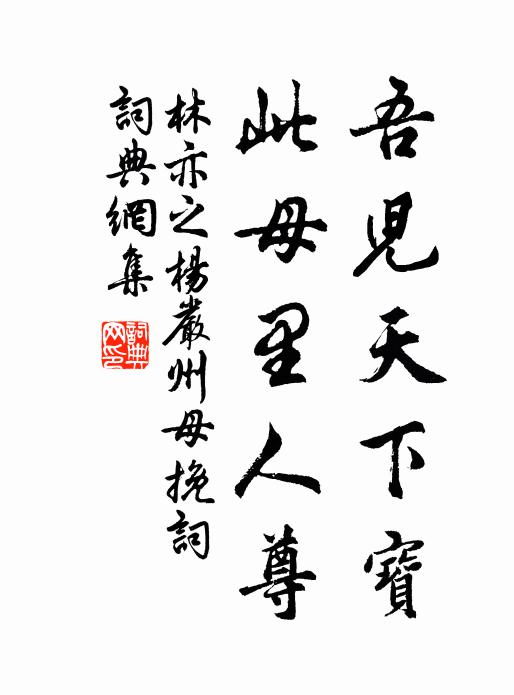 吾兒天下寶
此母里人尊
林亦之楊嚴州母挽詞
詞典網集
詞典網印